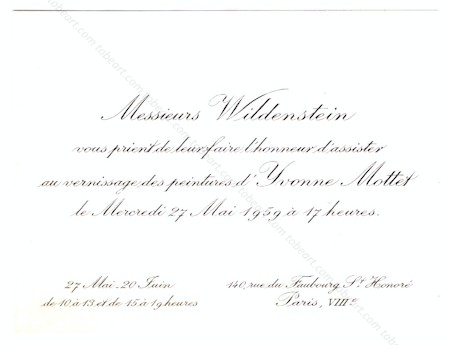 Messieurs Wildenstein
vous prient de leur faire l'honneur d'assister
au vernissage des peintures d'Yvonne Mottet
le Mercredi 27 Mai 1959 à 17 heures.
27 Mai - 20 Juin
de 10 à 13 et de 15 à 19 heures
140, rue du Faubourg St Honoré
Paris, VIIIe
www.tobeart.com